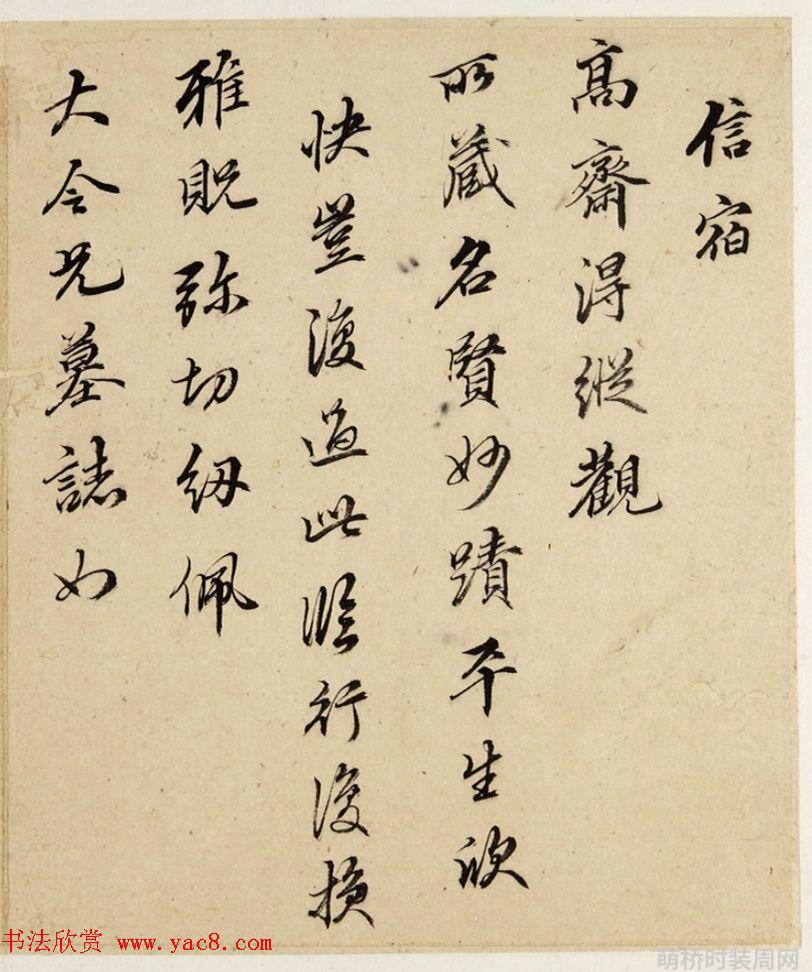 信宿
高齋得縱觀
所藏名賢妙蹟平生欣
快豈復過此臨行復損
雅貺弥切紉佩
大令兄墓誌如
书法欣赏 www.yac8.com
萌桥时装周网